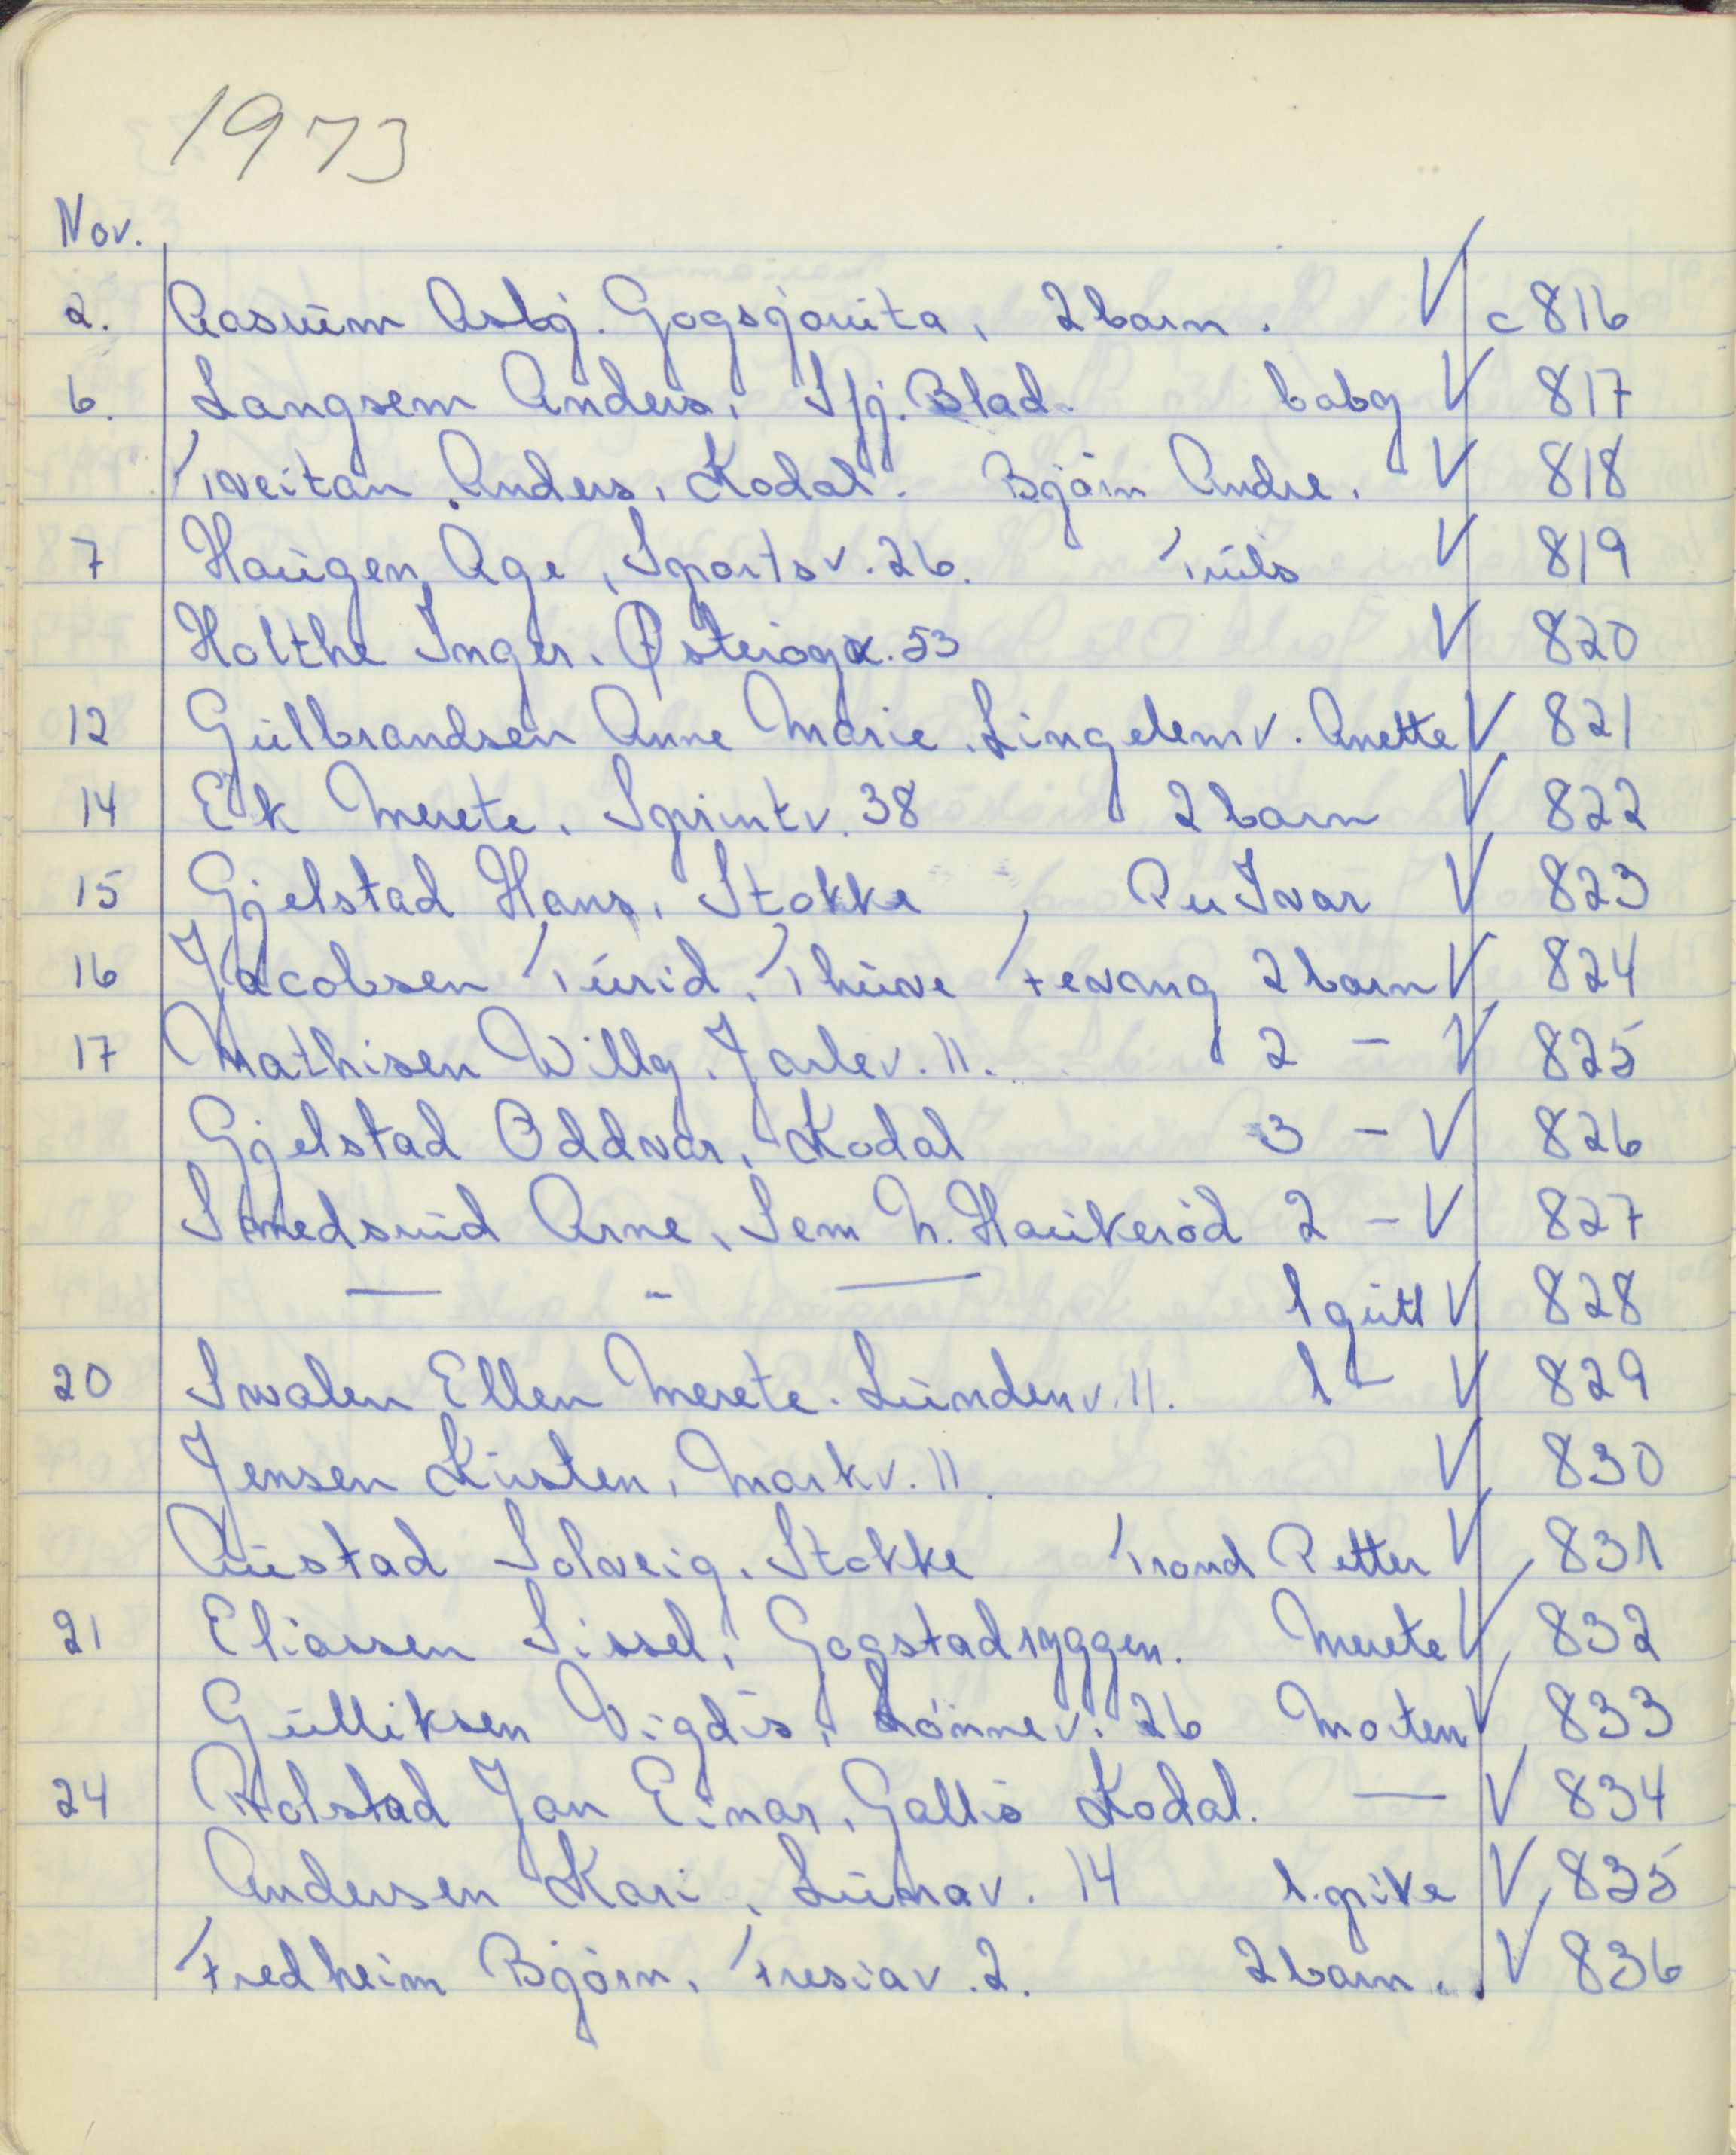 1973
Nov.
2. Aasrum Asbj. Gogsjordta, 2 barn. V c 816
6. Langsem Anders, Sfj. Blad. baby V 817
Tveitan Anders, Kodal. Bjørn Andre. V 818
7 Haugen Åge, Sportsv. 26. Truls V 819
Holthe Inger, Østerøya. 53 V 820
12 Gulbrandsen Anne Marie, Lingelemv. Anette V 821
14 Ek Merete, Sprintv. 38 2 barn V 822
15 Gjelstad Hans, Stokke, Per Ivar V 823
16 Jacobsen Turid, Thuve Fevang 2 barn V 824
17 Mathisen Willy, Jarlev. 11. 2 - V 825
Gjelstad Oddvar, Kodal 3 - V 826
Smedsrud Arne, Sem N. Haukerød 2 - V 827
— - — 1 gutt V 828
20 Svalen Ellen Merete. Lundenv. 11. 1 - V 829
Jensen Kirsten, Markv. 11. V 830
Austad Solveig, Stokke Trond Petter V 831
21 Eliassen Sissel, Gogstadryggen. Merete V 832
Gulliksen Vigdis, Lønnev. 26 Morten V 833
24 Rolstad Jan Einar, Gallis Kodal. — V 834
Andersen Kari, Lunav. 14 1. pike V 835
Fredheim Bjørn, Fresiav. 2. 2 barn. V 836